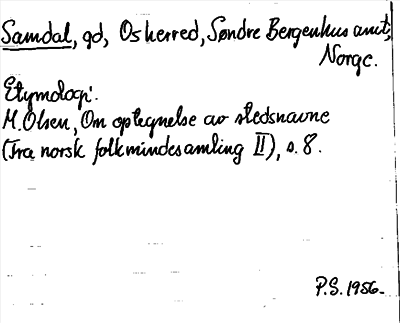 Samdal, gd, Os herred, Søndre Bergenhus amt,
Norge.
Etymologi:
M. Olsen, Om optegnelse av stedsnavne
(Fra norsk folkmindesamling II), s. 8.
P.S. 1956.